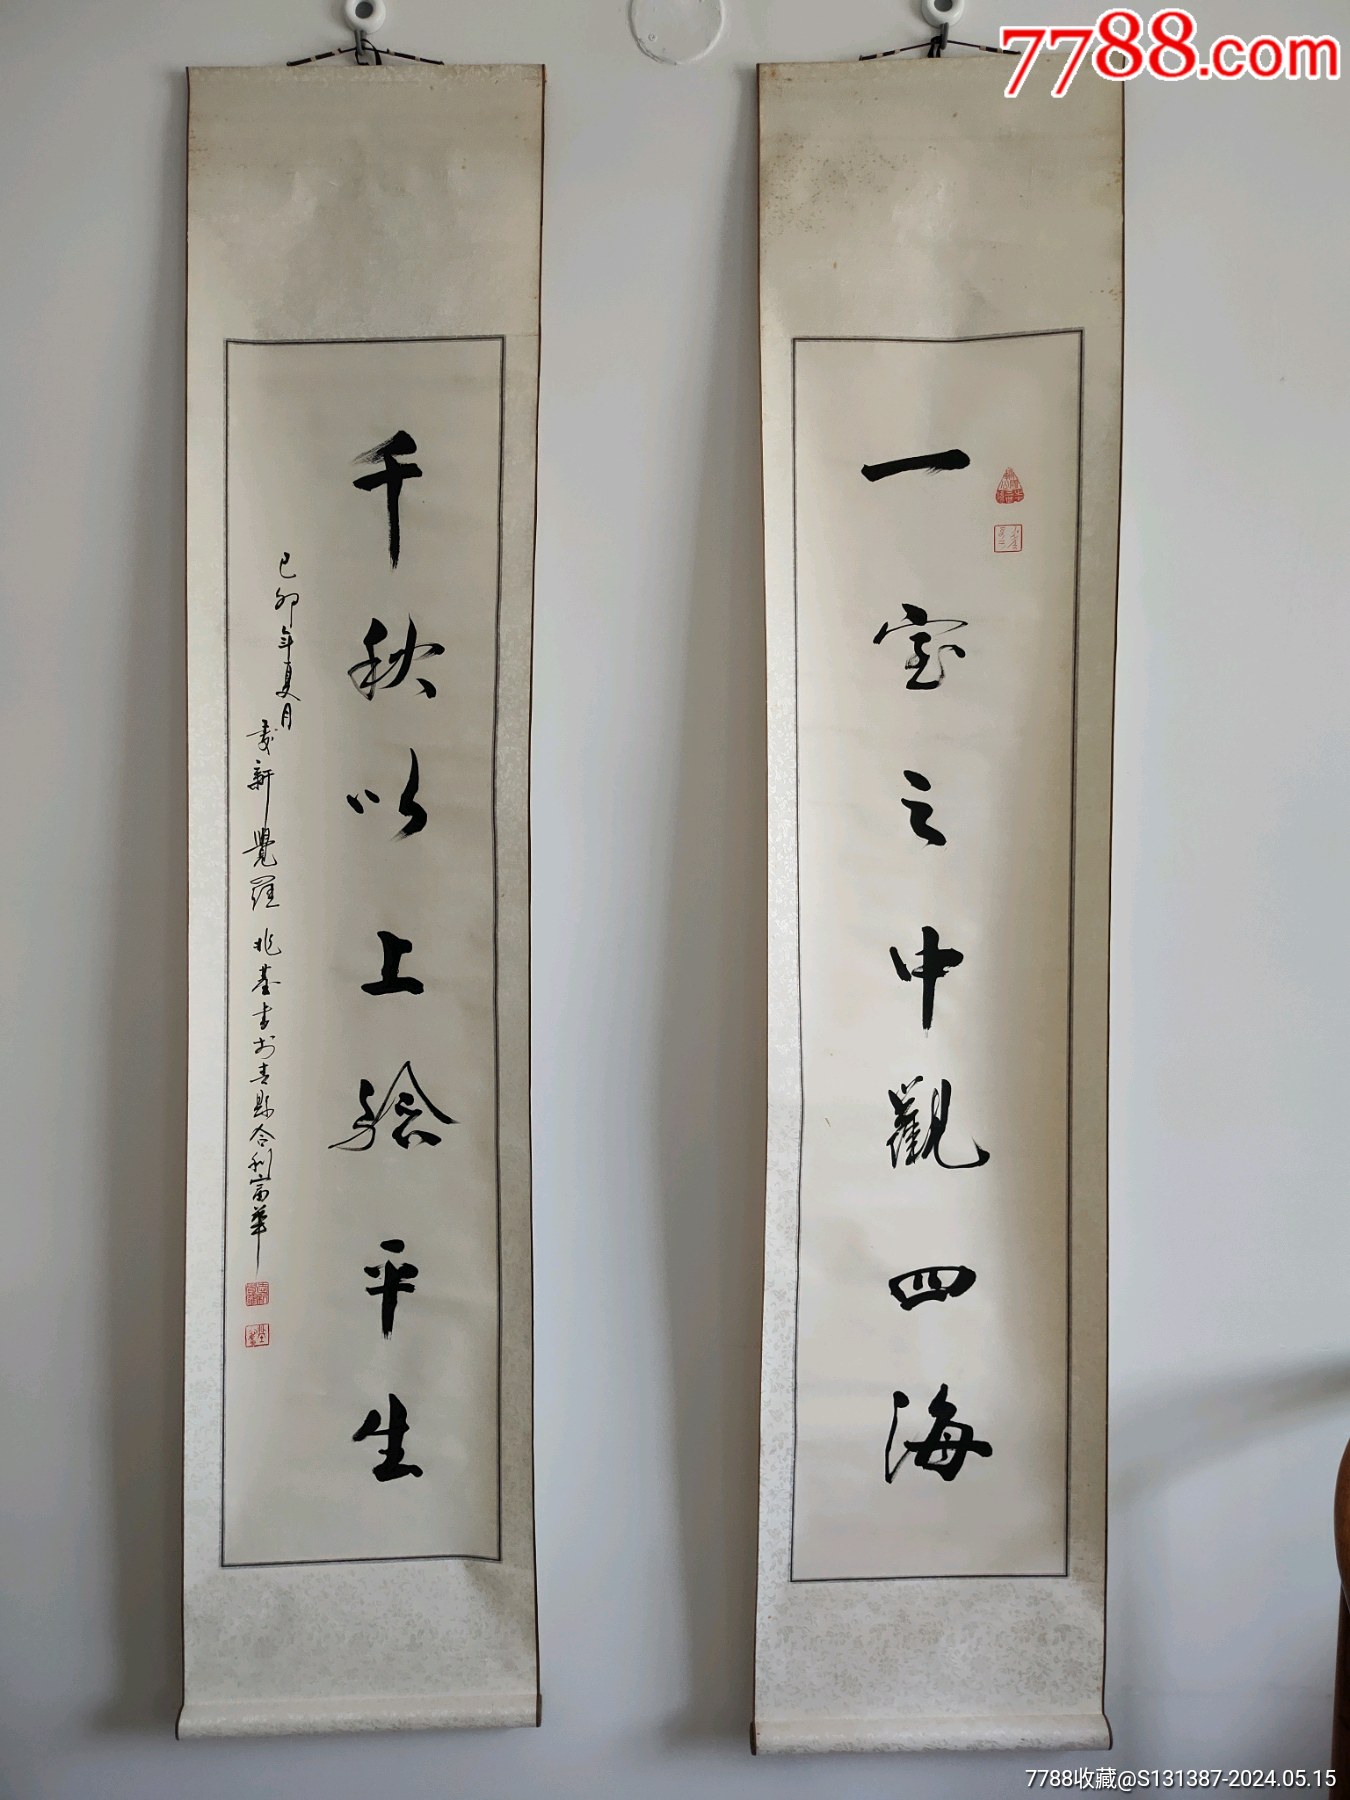 7788.com
一室之中觀四海
千秋以上驗平生
己卯年夏月
愛新覺羅兆基書於青縣合利富華
7788收藏@S131387-2024.05.15